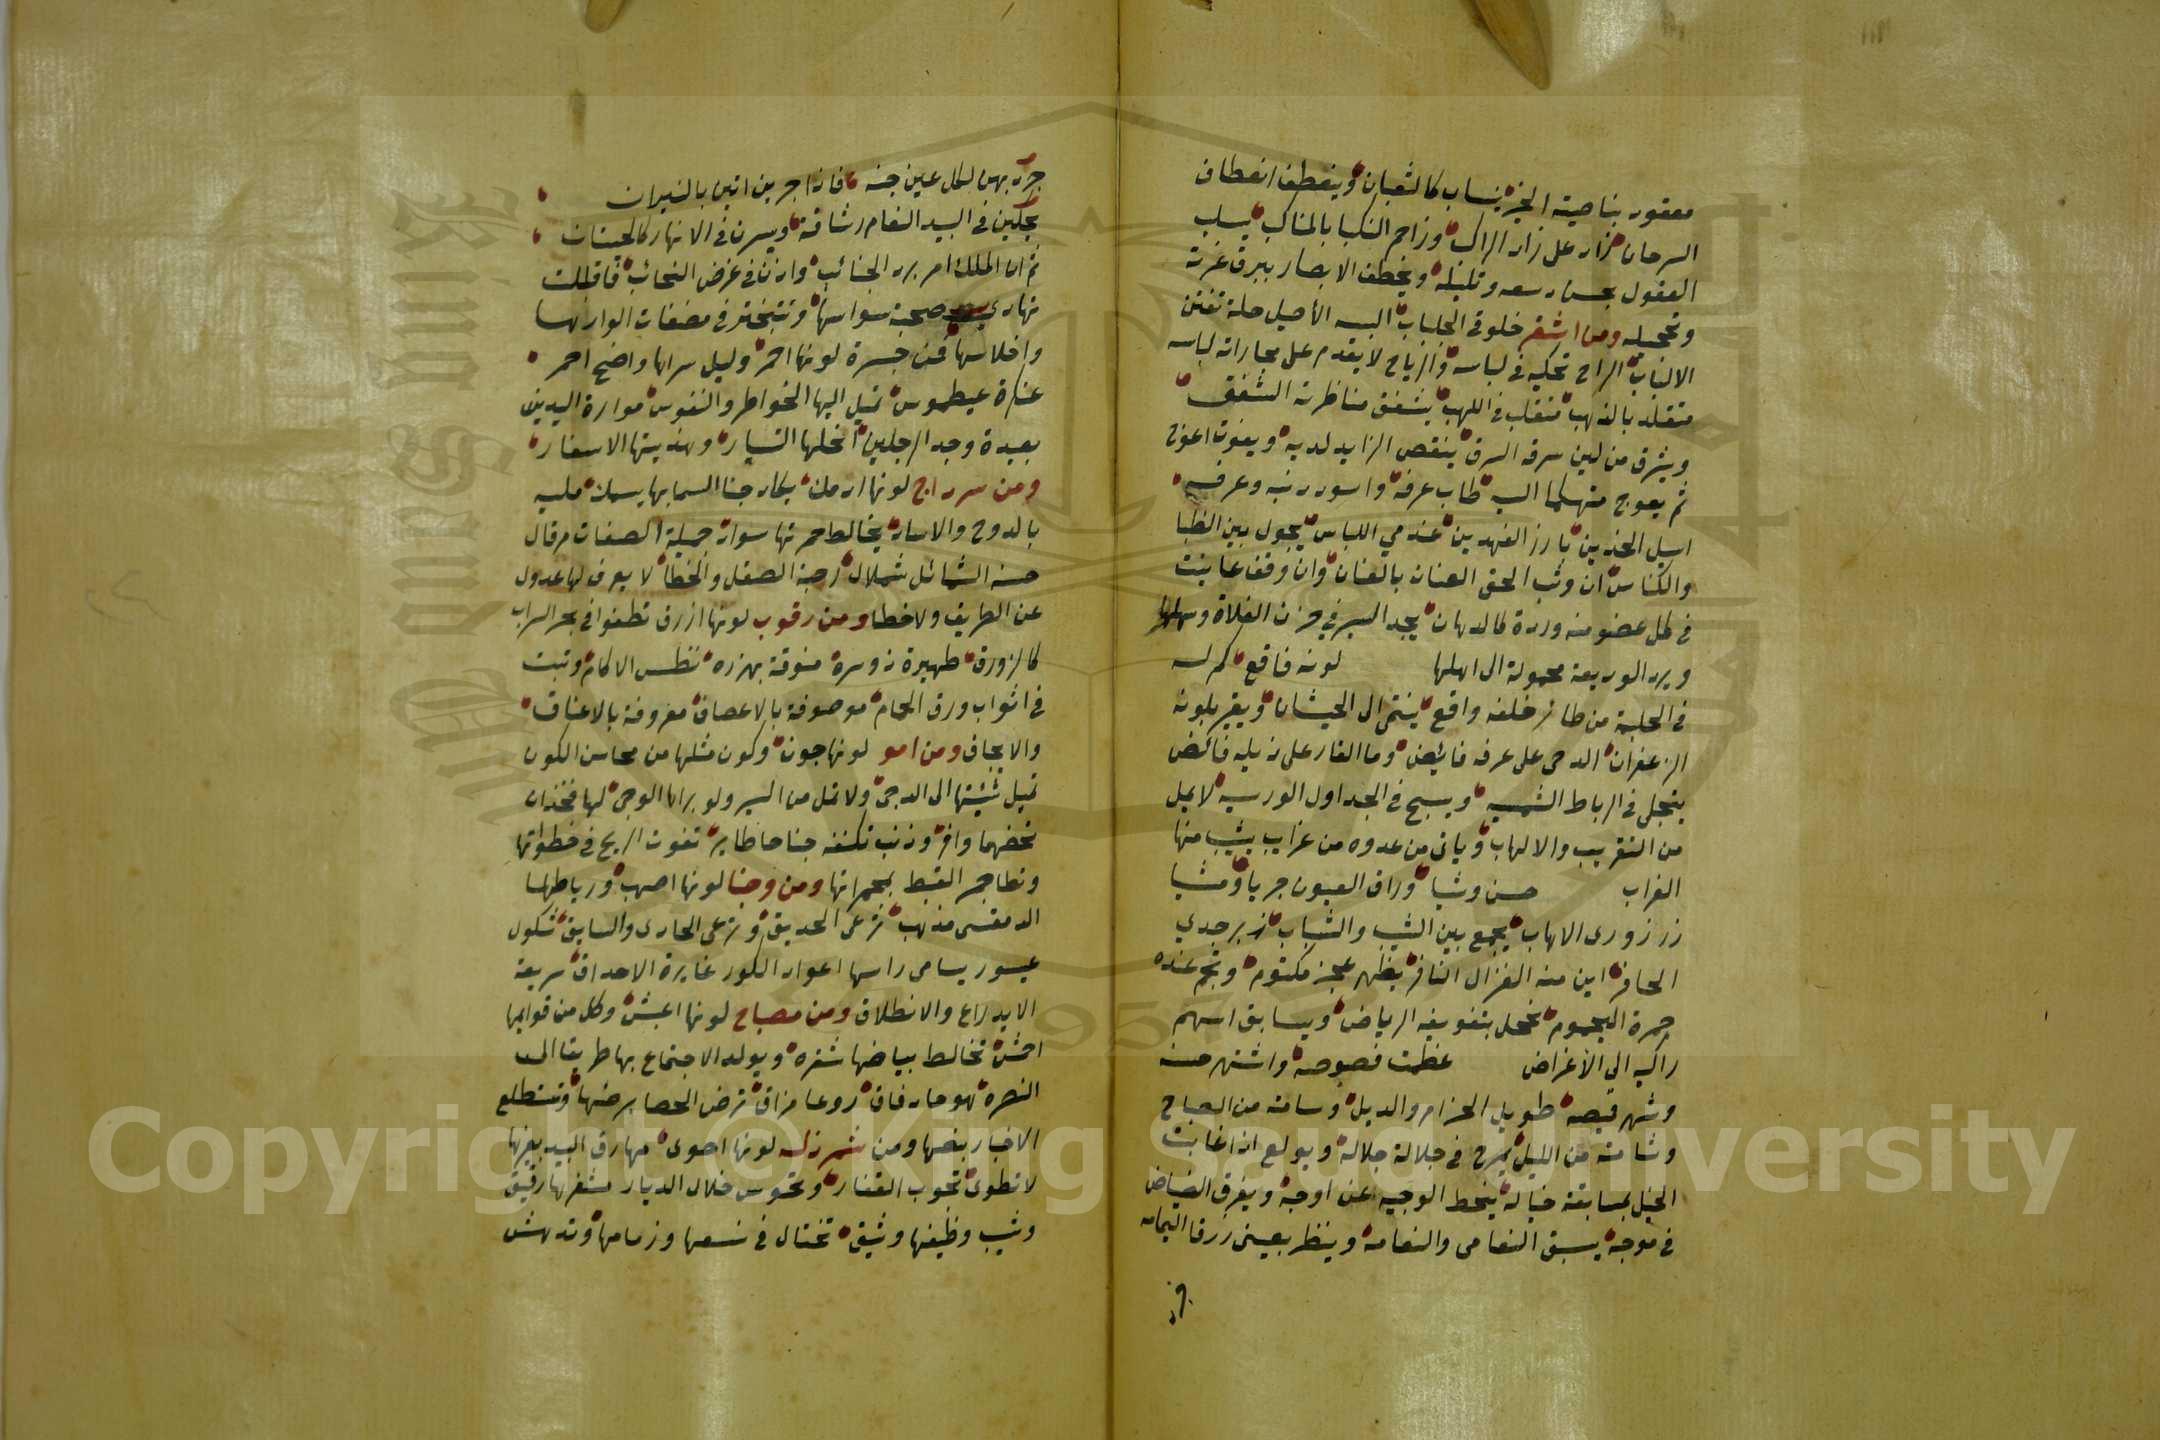 معقود بناصيته الخير ينساب كالثعبان وينعطف انعطاف
السرحان زاد على زاد الراكب وزاحم النكبا بالمناكب يسلب
العقول بحسن رسعه وتليله ويخطف الابصار ببرق غرته
وتحجيله ومن اشقر خلوقي الجلباب البسه الأصيل حلة تفتن
الالباب الراح تحكيه في لباسه والرياح لا يقدم على مجاراته لباسه
متقلد بالذهب متقلب في اللهب يشفق مناظرته الشفق
ويشرق من لين سرقه السرق ينقص الزايد لديه ويفوت اعوج
ثم يعوج متهكما اليه طاب عرفه واسود ذنبه وعرفه
اسيل الخدين بارز النهدين عندمي اللباس يجول بين الظبا
والكناس ان وثب الحق العنان بالعنان وان وقف عاينت
في كل عضو منه وردة كالدهان يجد السير في حزن الفلاة وسهلها
ويرد الوديعة محمولة الى اهلها لونه فاقع كم له
في الحلبة من طائر خلفه واقع ينتمي الى الحبشان ويقير بلونه
الزعفران الدجى على عرفه فايض وما القار على ذيله فائض
ينجلي في الرباط الشمسيه ويسبح في الجداول الورسيه لا يمل
من التقريب والالهاب ويأتي من عدوه من غرايب يشيب منها
الغراب حسن وشيا وراق العيون جريا ومشيا
زرزورى الاهاب يجمع بين الشيب والشباب زبرجدي
الحافر اين منه الغزال النافر يظهر عجز مكتوم وتجم عنده
جمرة اليحموم تخجل بتفويفه الرياض ويسابق اسهم
راكبه الي الأغراض عظمت فصوصه واشتهر حسنه
وشهر قيصه طويل الحزام والذيل وسامته من الصباح
وشامته من الليل يمرح في جلالة جلاله ويولع اذا غابت
الخيل بمسابقة خياله ينحط الوجيه عن اوجه ويغرق الفياض
في موجه يسبق النعامى والنعامه وينظر بعيني زرقا اليمامه
جرد بهن لكل عين جنه فاذا جرين اتين بالنيران
يحكين في البيد النعام رشاقة ويسرن في الانهار كالحيتان
ثم ان الملك امر برد الجنائب واذن في عرض النجائب فاقبلت
تهادى صحبة سواسها وتتبختر في مضفات الوارنها
واخلاسها فمن جسرة لونها احمر وليل سراها واضح احمر
عذافرة عيطموس تميل اليها الخواطر والنفوس موارة اليدين
بعيدة وجد الرجلين انحلها التسيار وهذبتها الاسفار
ومن سرداج لونها ارمك يكاد جنا السما بها يسمك مليه
بالدوح والاساد يخالط حمرتها سواد جميلة الصفات مرقال
حسنه الشمائل شملال رحبة الصقل والخطا لا يعرف لها عدول
عن الطريق ولا خطا ومن رقوب لونها ازرق تطفوا في بحر السراب
كالزورق ظهيرة دوسره منوقة بهزره تظس الاكام وتبت
في اثواب ورق الحمام موصوفة بالاعصاف معروفة بالاعناق
والايجاف ومن امو لونها جون وكون مثلها من محاسن الكون
تميل شئيتها الى الدجى ولا تمل من السير ولو براها الوجى لها فخذان
نحضهما وافر وذنب تكنفه جناحا طاير تفوت الريح في خطواتها
وتطاجر القبط بجمراتها ومن وجنا لونها اصهب ورياطها
الدمقسى مذهب ترعى الحديق وترعى الحادى والسايق شكول
عيسور يسامى راسها اعواد الكور غايرة الاحداق سريعة
الايدراع والانطلاق ومن مصباح لونها اعبش وكل من قوايمها
احمش تخالط بياضها شقره ويولد الاجتماع بها طريقا الى
النصره تهوحاد فاق روعا مزاق ترض الحصا برضها وتستطلع
الاخبار بنصها ومن شمرذله لونها احوى مهارق البيد بغيرها
لا تطوى تجوب القفار وتحتوس خلال الديار مشفرها رقيق
وشيب وظيفها وثيق تختال في نسعها وزمامها وتدهش